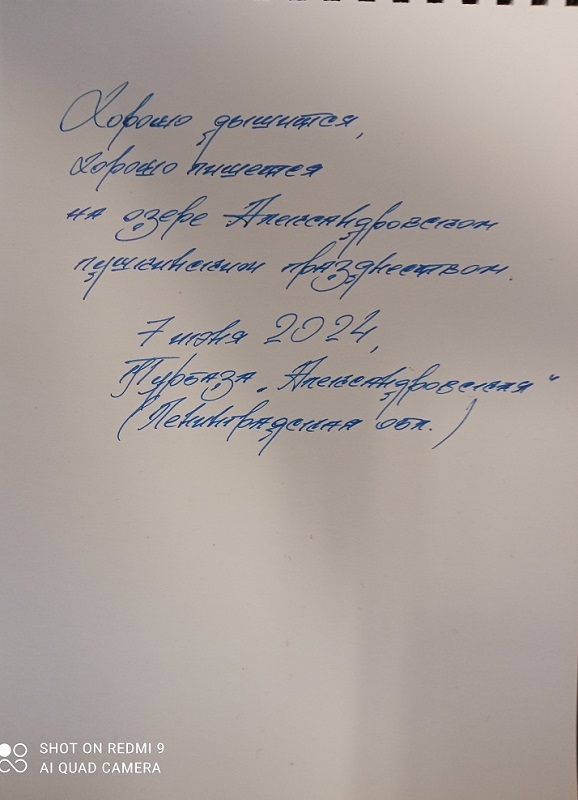 Хорошо дышится,
Хорошо пишется
на озере Александровском
пушкинским празднеством.
7 июня 2024,
Турбаза „Александровская“
(Ленинградская обл.)
SHOT ON REDMI 9
AI QUAD CAMERA